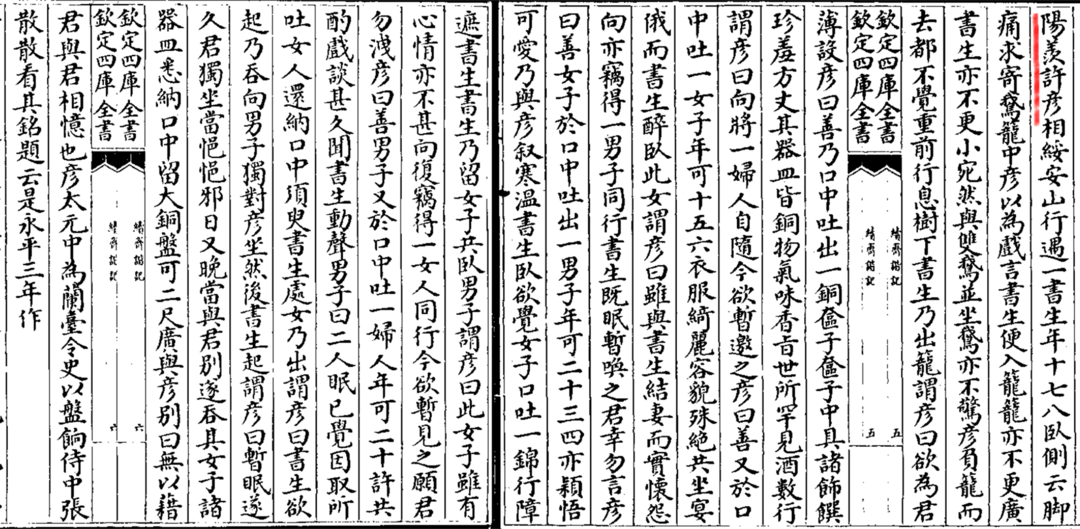 陽羨許彥相綏安山行遇一書生年十七八臥側云脚
痛求寄鵞籠中彥以為戲言書生便入籠籠亦不更廣
書生亦不更小宛然與雙鵞並坐鵞亦不驚彥負籠而
去都不覺重前行息樹下書生乃出籠謂彥曰欲為君
欽定四庫全書 續齊諧記 五
欽定四庫全書 續齊諧記 五
薄設彥曰善乃口中吐出一銅奩子奩子中具諸飾饌
珍羞方丈其器皿皆銅物氣味香旨世所罕見酒數行
謂彥曰向將一婦人自隨今欲暫邀之彥曰善又於口
中吐一女子年可十五六衣服綺麗容貌殊絕共坐宴
俄而書生醉臥此女謂彥曰雖與書生結妻而實懷怨
向亦竊得一男子同行書生既眠暫喚之君幸勿言彥
曰善女子於口中吐出一男子年可二十三四亦穎悟
可愛乃與彥叙寒溫書生臥欲覺女子口吐一錦行障
遮書生書生乃留女子共臥男子謂彥曰此女子雖有
心情亦不甚向復竊得一女人同行今欲暫見之願君
勿洩彥曰善男子又於口中吐一婦人年可二十許共
酌戲談甚久聞書生動聲男子曰二人眠已覺因取所
吐女人還納口中須臾書生處女乃出謂彥曰書生欲
起乃吞向男子獨對彥坐然後書生起謂彥曰暫眠遂
久君獨坐當悒悒邪日又晚當與君別遂吞其女子諸
器皿悉納口中留大銅盤可二尺廣與彥別曰無以藉
欽定四庫全書 續齊諧記 六
欽定四庫全書 續齊諧記 六
君與君相憶也彥太元中為蘭臺令史以盤餉侍中張
散散看其銘題云是永平三年作